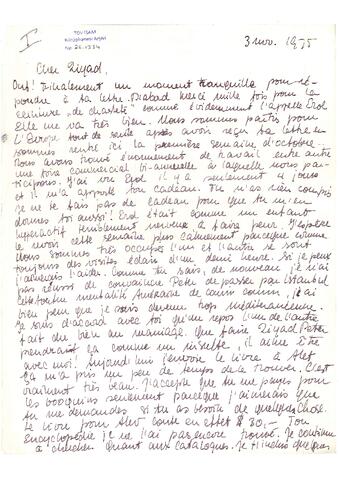 I
TDV İSAM
Kütüphanesi Arşivi
No 2E.1334
3 nov. 1975
Cher Ziyad,
Ouf! Finalement un moment tranquille pour ré-
pondre à ta lettre. D'abord merci mille fois pour la
ceinture "de chasteté" comme évidemment l'appelle Erol
Elle me va très bien. Nous sommes partis pour
l'Europe tout de suite après avoir reçu ta lettre et
sommes rentré ici la première semaine d'octobre.
Nous avons trouvé énormement de travail entre autre
une foire commercial bi-annuelle à laquelle nous par-
ticipons. J'ai vu Erol il y a seulement 4 jours
et il m'a apporté ton cadeau. Tu n'as rien compris
je ne te fais pas de cadeau pour que tu m'en
donnes toi aussi! Erol était comme un enfant
hyperactif terriblement nerveux à faire peur. J'espère
le revoir cette semaine plus calmement parce que comme
nous sommes très occupés l'un et l'autre se sont
toujours des visites éclais d'un demi heure. Si je peux
l'aiderais. Comme tu sais, de nouveau je n'ai
pas réussi de convaincre Peter de passer par Istanbul
cette mentalité Américaine de
bien peur que je sois devenu trop méditerranéenne.
Je suis d'accord avec toi qu'un repos l'un de l'autre
fait du bien au mariage. Que faire Ziyad Peter
prendrait ça comme un insulte, il aime être
avec moi! Aujourd'hui j'envoie le livre à Alef
Ça m'a pris un peu de temps de la trouver. C'est
vraiment très beau. J'accepte que tu me payes pour
les bouquins seulement parceque j'aimerais que
tu me demandes si tu as besoin de quelque chose.
Le livre pour Alef coute en effet $ 30,- Ton
Encyclopédie je ne l'ai pas encore trouvé. Je continue
à chercher. Quant aux catalogues. Je t'inclus quelques